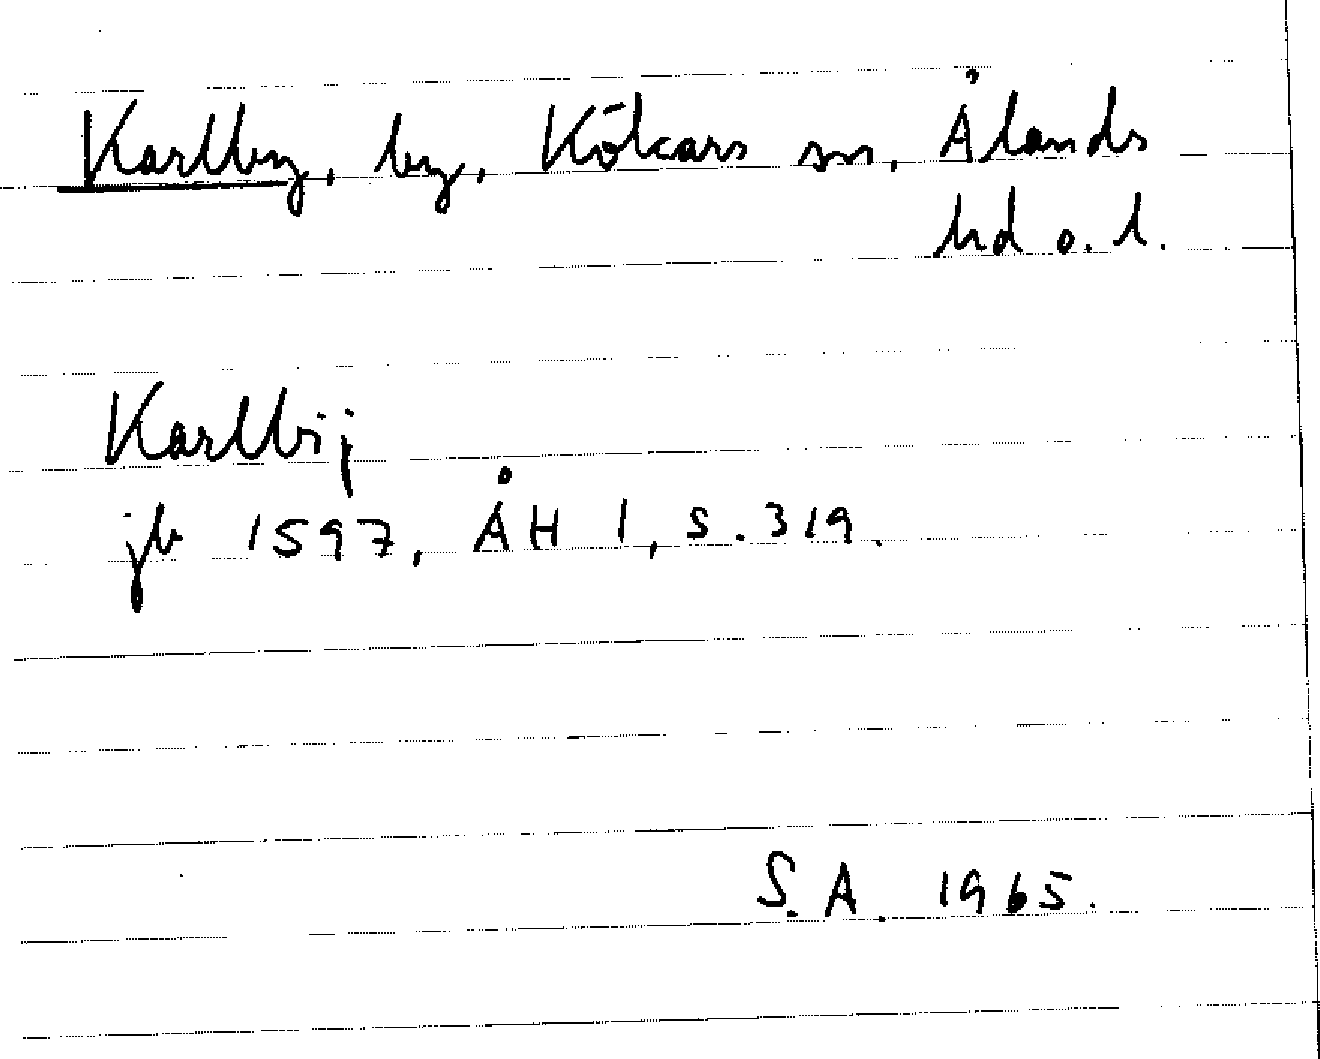 Karlby, by, Kökars sn, Ålands
hd o. l.
Karlbij
jb 1597, ÅH 1, s. 319.
S. A. 1965.